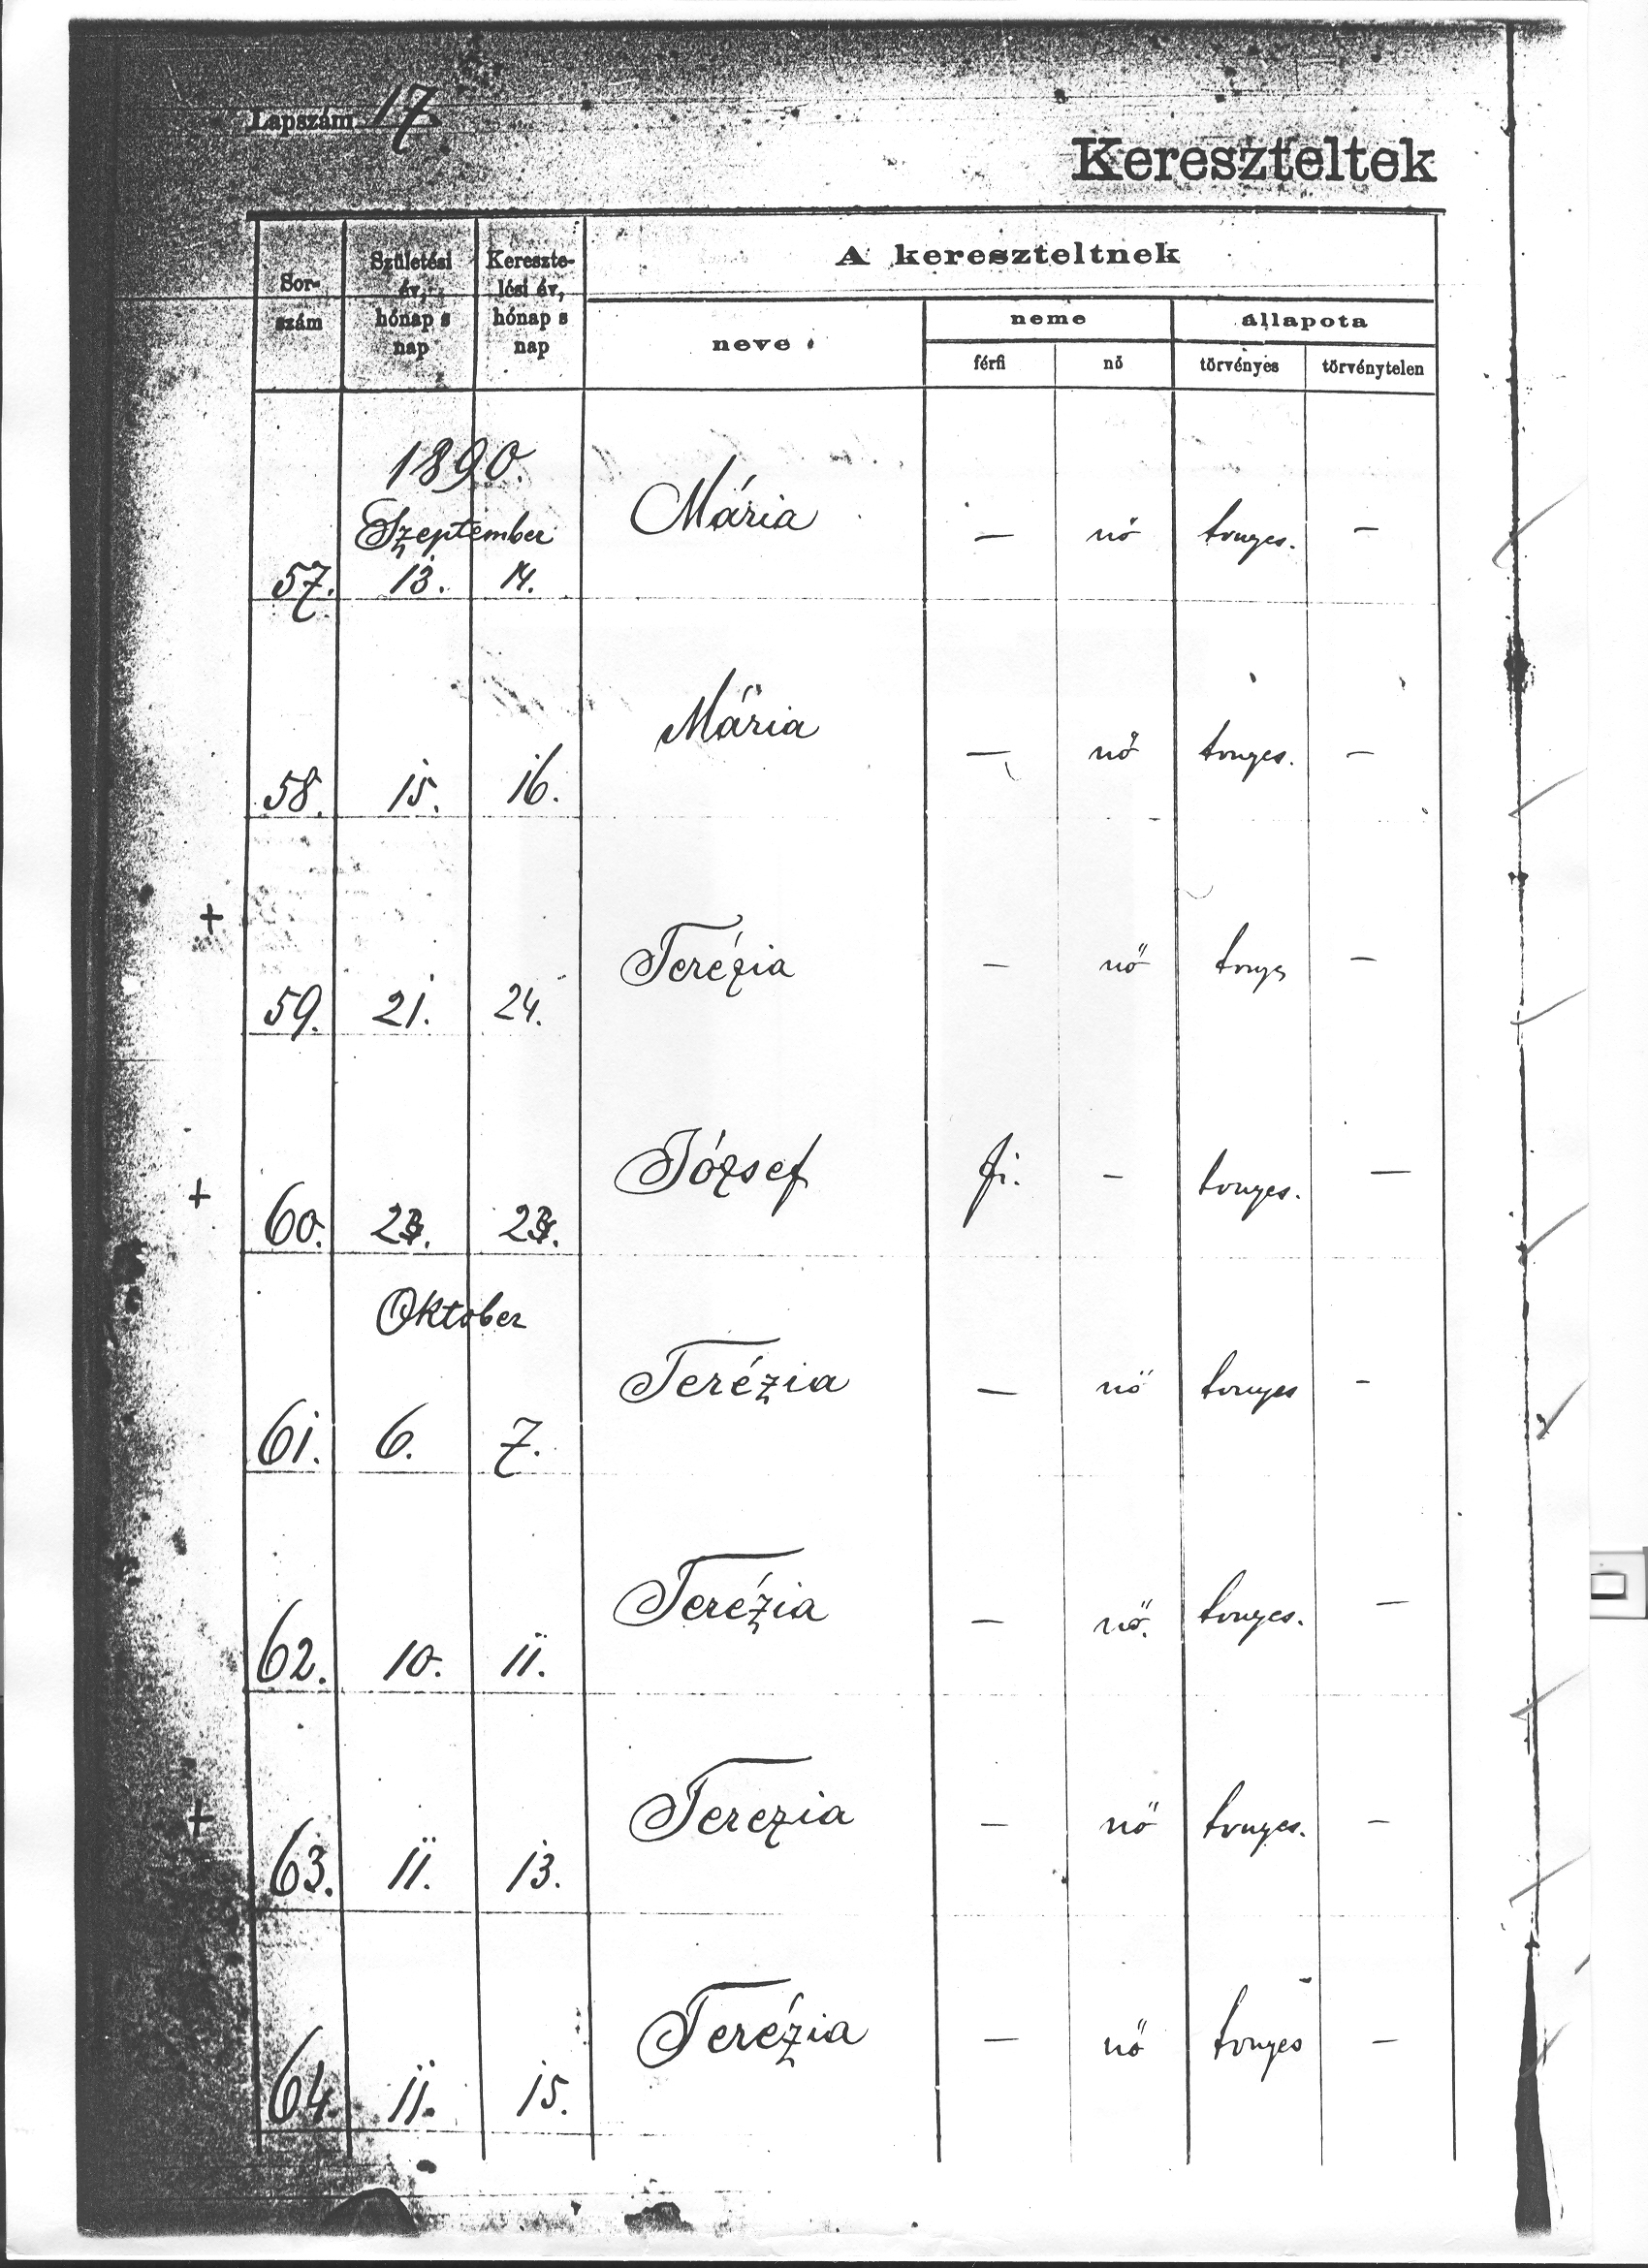 Lapszám 17
Kereszteltek
Sor-szám
Születési év, hónap s nap
Keresztelési év, hónap s nap
A kereszteltnek
neve
neme
állapota
férfi
nő
törvényes
törvénytelen
1890.
Szeptember
57. 13. 14. Mária — nő tvnyes. —
58. 15. 16. Mária — nő tvnyes. —
+
59. 21. 24. Terézia — nő tvnyes —
+
60. József fi. — tvnyes. —
Oktober
61. 6. 7. Terézia — nő tvnyes —
62. 10. 11. Terézia — nő. tvnyes. —
+
63. 11. 13. Terezia — nő tvnyes. —
64. 11. 15. Terézia — nő tvnyes —